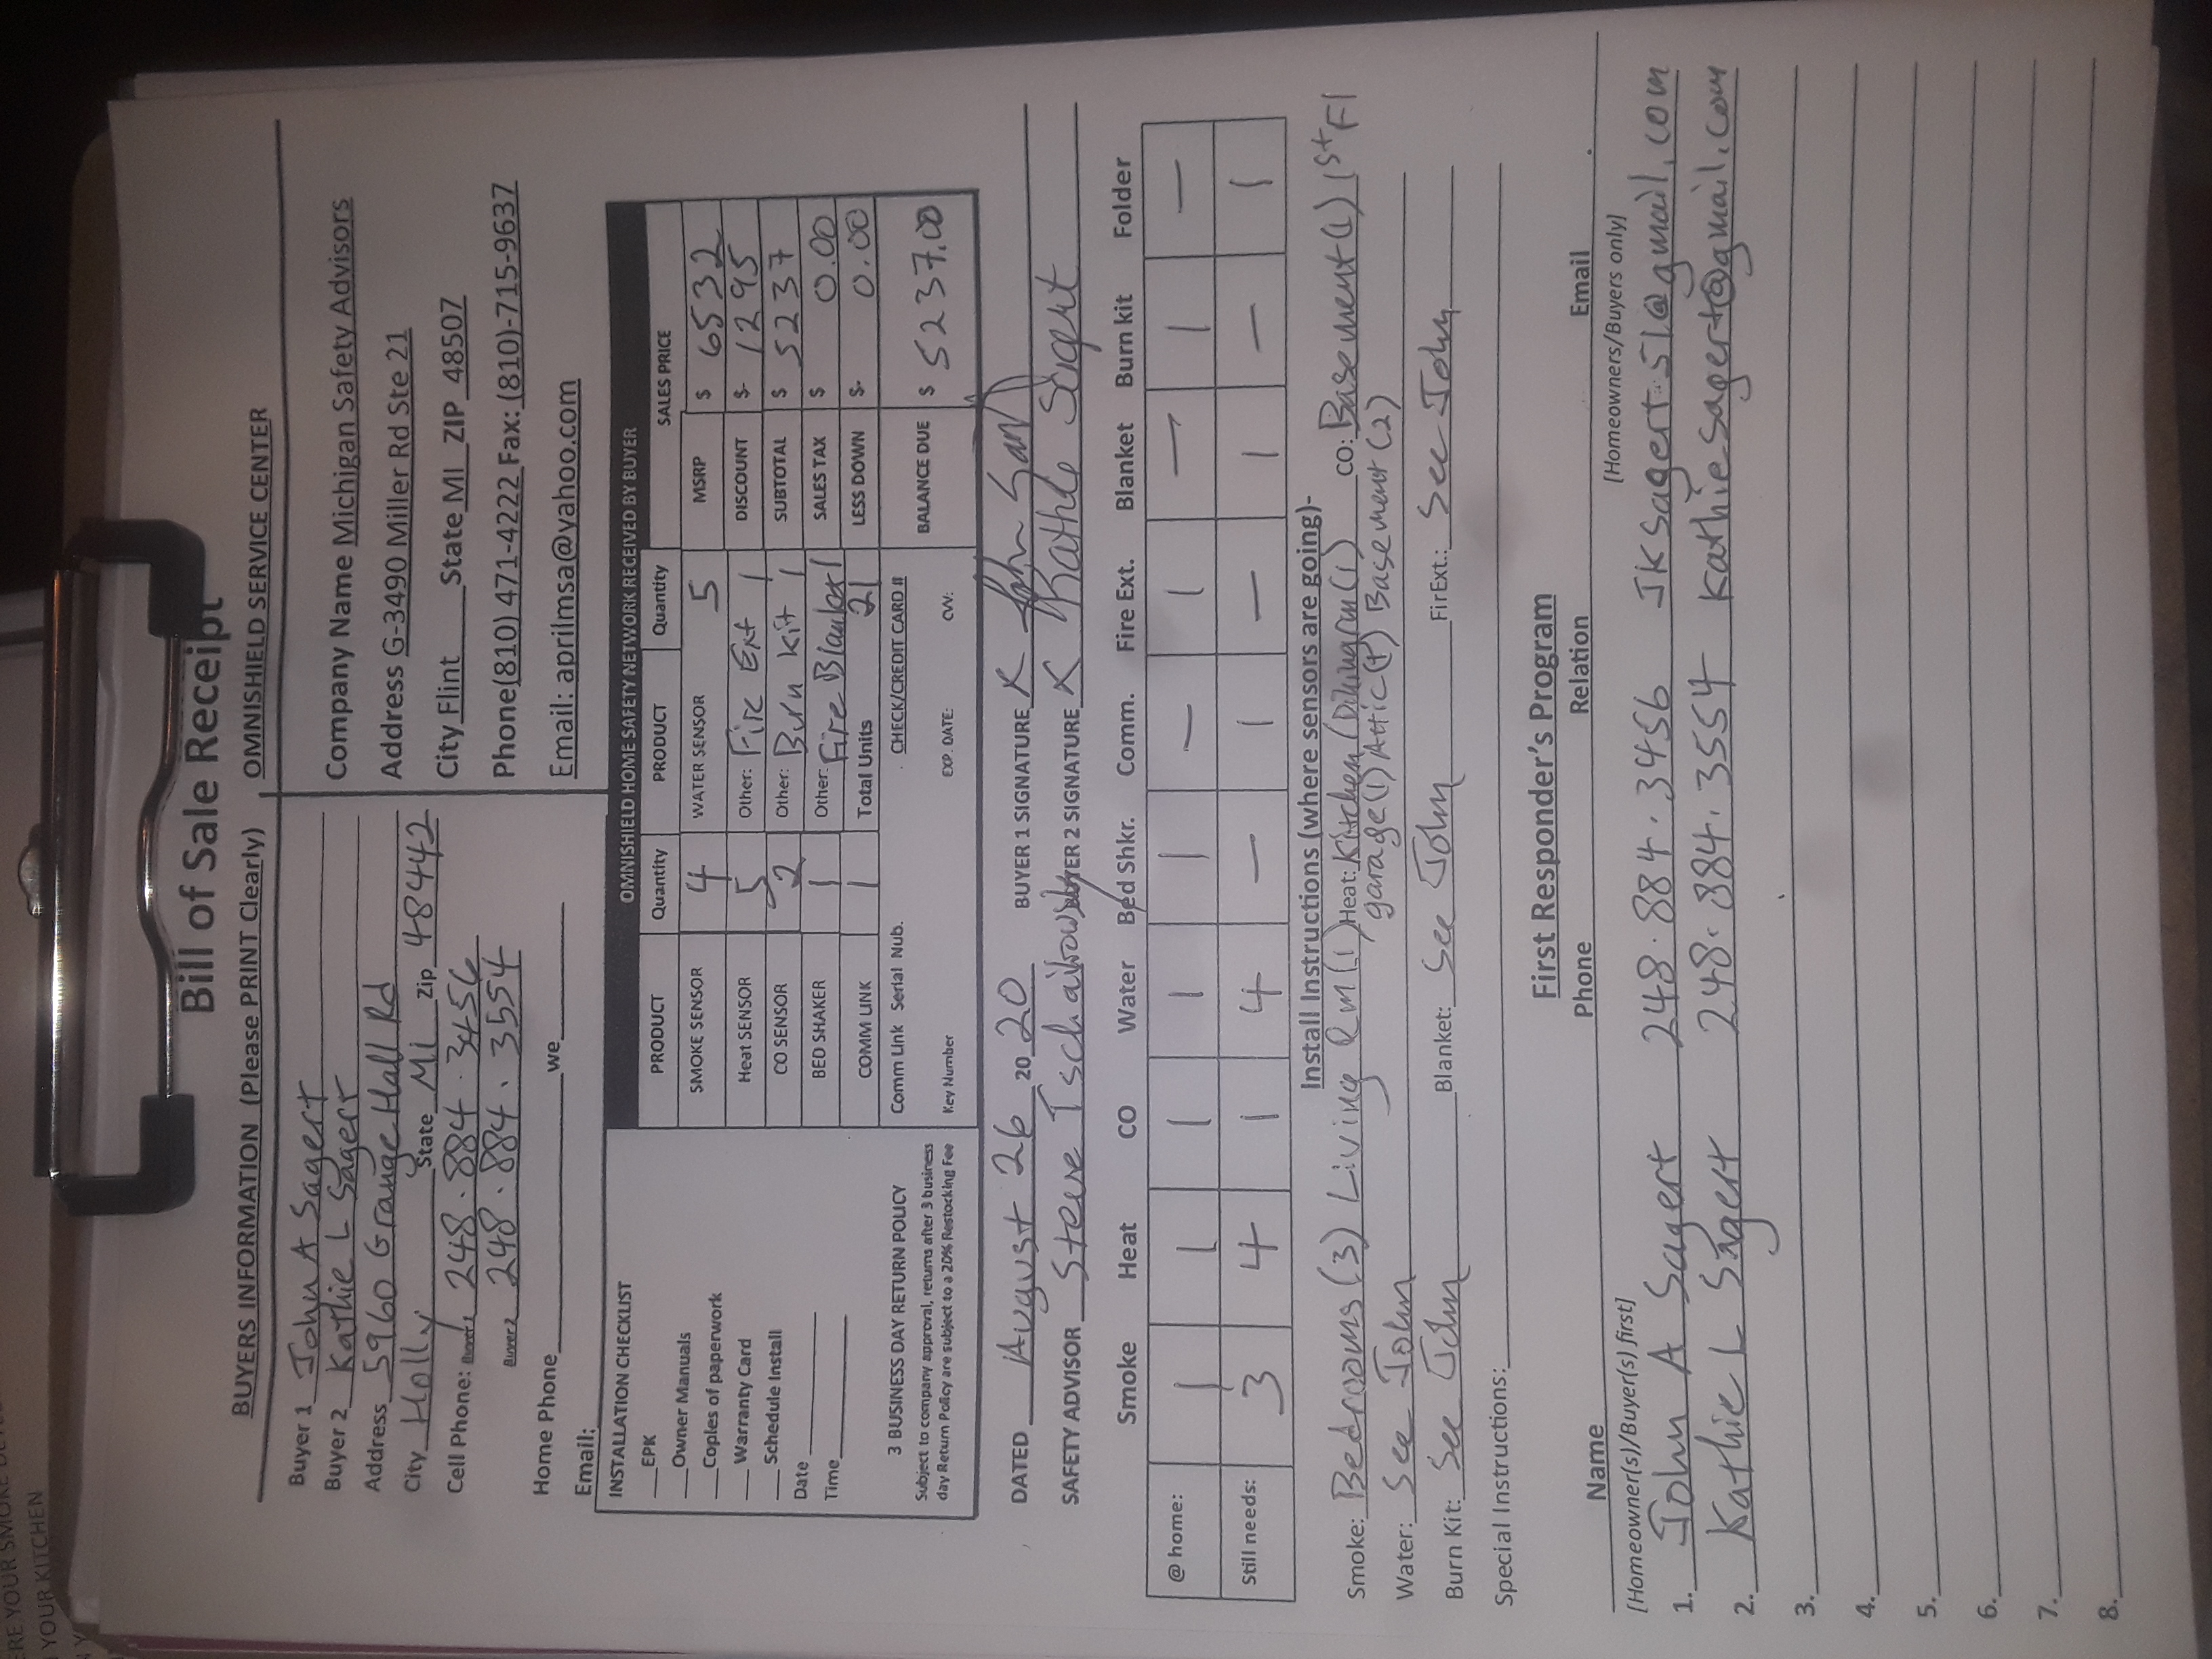 Bill of Sale Receipt
BUYERS INFORMATION (Please PRINT Clearly)
OMNISHIELD SERVICE CENTER
Buyer 1 John A Sagert
Buyer 2 Kathie L Sagert
Address 5960 Grange Hall Rd
City Holly State MI Zip 48442
Cell Phone: Buyer 1 248.884.3456
Buyer 2 248.884.3554
Home Phone we
Email:
Company Name Michigan Safety Advisors
Address G-3490 Miller Rd Ste 21
City Flint State MI ZIP 48507
Phone(810) 471-4222 Fax: (810)-715-9637
Email: aprilmsa@yahoo.com
INSTALLATION CHECKLIST
EPK
Owner Manuals
Copies of paperwork
Warranty Card
Schedule Install
Date
Time
3 BUSINESS DAY RETURN POLICY
Subject to company approval, returns after 3 business
day Return Policy are subject to a 20% Restocking Fee
OMNISHIELD HOME SAFETY NETWORK RECEIVED BY BUYER
PRODUCT Quantity PRODUCT Quantity SALES PRICE
SMOKE SENSOR 4 WATER SENSOR 5 MSRP $ 6532
Heat SENSOR 5 Other: Fire Ext 1 DISCOUNT $- 1295
CO SENSOR 2 Other: Burn Kit 1 SUBTOTAL $ 5237
BED SHAKER 1 Other: Fire Blanket 1 SALES TAX $ 0.00
COMM LINK 1 Total Units 21 LESS DOWN $- 0.00
Comm Link Serial Nub. CHECK/CREDIT CARD # BALANCE DUE $ 5237.00
Key Number EXP. DATE: CVV:
DATED August 26 20 20 BUYER 1 SIGNATURE X
SAFETY ADVISOR Steve BUYER 2 SIGNATURE X Kathie Sagert
Smoke Heat CO Water Bed Shkr. Comm. Fire Ext. Blanket Burn kit Folder
@ home: 1 1 1 1 1 — 1 — 1 —
Still needs: 3 4 1 4 — 1 — 1 — 1
Install Instructions (where sensors are going)-
Smoke: Bedrooms (3) Living Rm (1) Heat: Kitchen/Diningrm(1) CO: Basement (1) 1st Fl
garage(1) Attic(1) Basement (2)
Water: See John
Burn Kit: See John Blanket: See John FirExt.: See John
Special Instructions:
First Responder's Program
Name Phone Relation Email
[Homeowner(s)/Buyer(s) first] [Homeowners/Buyers only]
1. John A Sagert 248.884.3456 JKSagert51@gmail.com
2. Kathie L Sagert 248.884.3554 Kathiesagert@gmail.com
3.
4.
5.
6.
7.
8.
YOUR KITCHEN